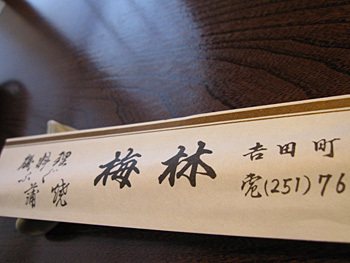 御料理
蒲焼
梅林
吉田町
電(251)76